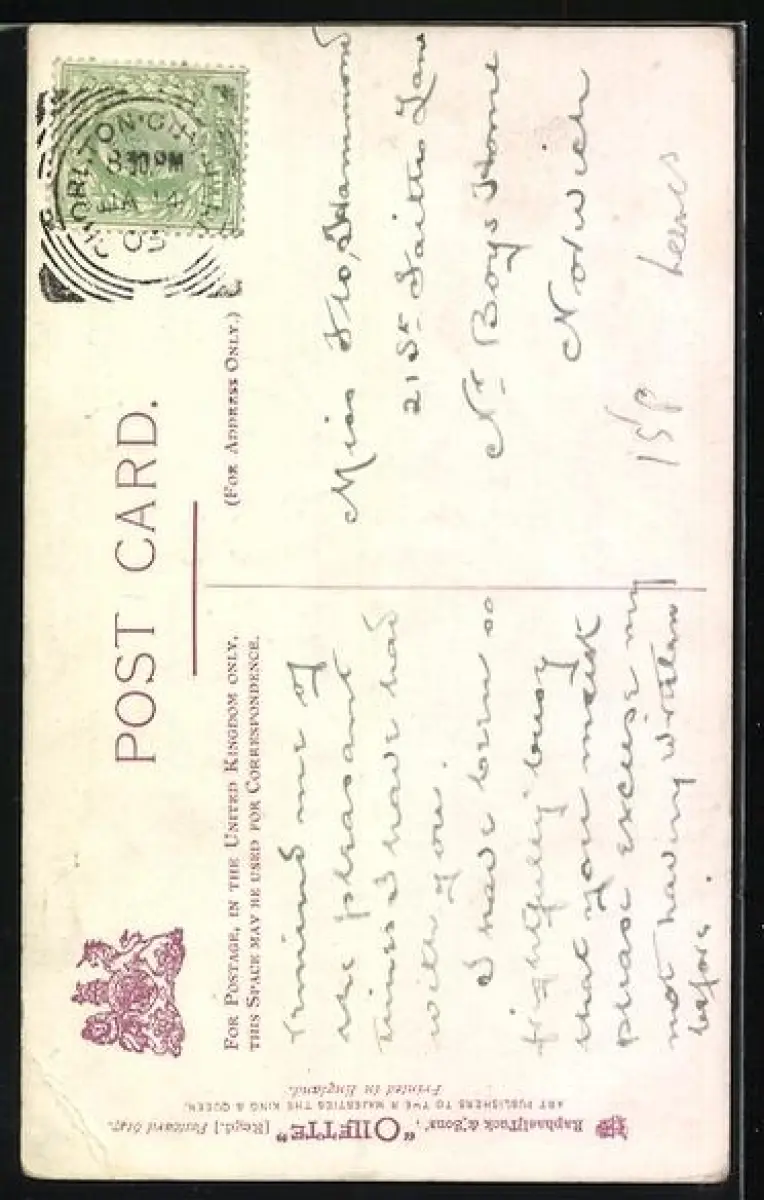 POST CARD.
FOR POSTAGE, IN THE UNITED KINGDOM ONLY,
THIS SPACE MAY BE USED FOR CORRESPONDENCE.
(FOR ADDRESS ONLY.)
CHORLTON-CUM-HARDY
8.30 PM
JA 14
05
remind me of
the pleasant
times I have had
with you.
I have been so
frightfully busy
that you must
please excuse my
not having written
before.
Miss Flo, Hammond
21 St Faiths Lane
Nr Boys Home
Norwich
15p
Raphael Tuck & Sons' "OILETTE" [Regd.] Postcard 6147.
ART PUBLISHERS TO THEIR MAJESTIES THE KING & QUEEN.
Printed in England.